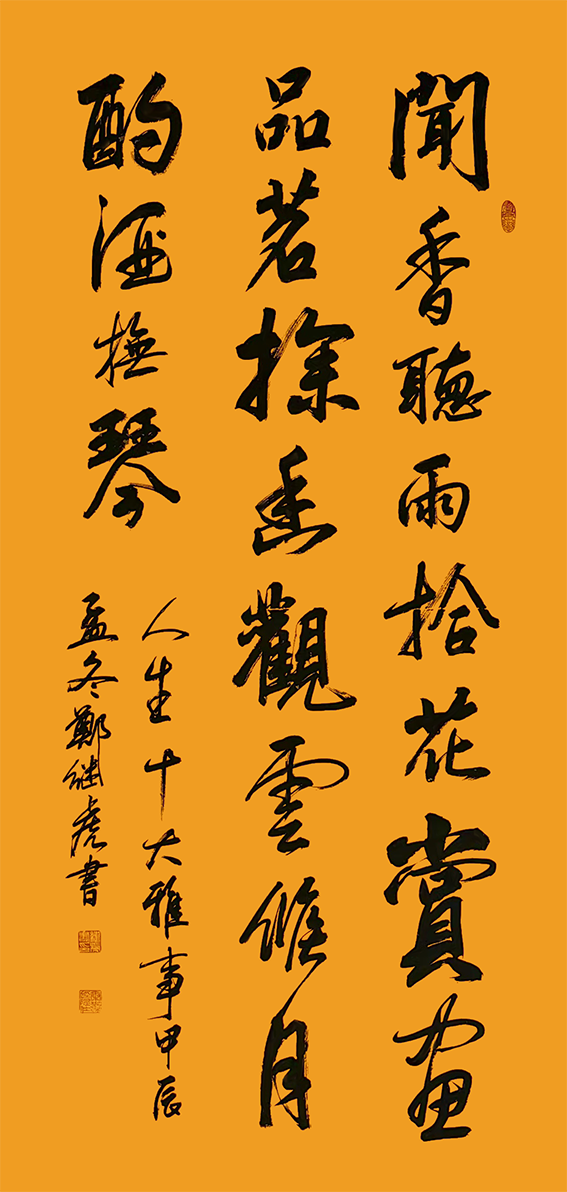 聞香聽雨拾花賞畫
品茗探幽觀雲候月
酌酒撫琴
人生十大雅事甲辰
孟冬鄭继虎書